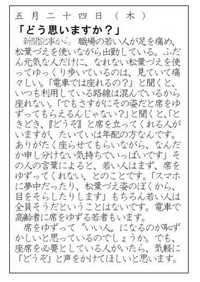 五月二十四日(木)
「どう思いますか?」
新聞記事から。職場の若い人が足を痛め、
松葉づえを使いながら出勤している。ふだ
んが元気な人だけに、なれない松葉づえを使
ってゆっくり歩いているのは、見ていて痛々
しい。「電車では座れるの?」と聞くと、
いつも利用している路線は混んでいるから
座れない。「でもさすがにその姿だと席をゆ
ずってもらえるんじゃない?」と聞くと、「と
きどき、『どうぞ』と席を立ってくれる人が
いますが、たいていは年配の方なんです。
ありがたく座らせてもらいながら、なんだ
か申し分けない気持ちでいっぱいです」そ
の人の言葉によると、若い人はまず、席を
ゆずってくれない、とのことです。「スマホ
に夢中だったり、松葉づえ姿のぼくから、
目をそらしたりします」もちろん若い人は
全員そうだということはないです。電車で
高齢者に席をゆずる若者もいます。
席をゆずって〝いい人〟になるのが恥ずか
しいと思っているのでしょうか。でも、
座席を必要としている人がいたら、気軽に
「どうぞ」と声をかけてほしいと思います。